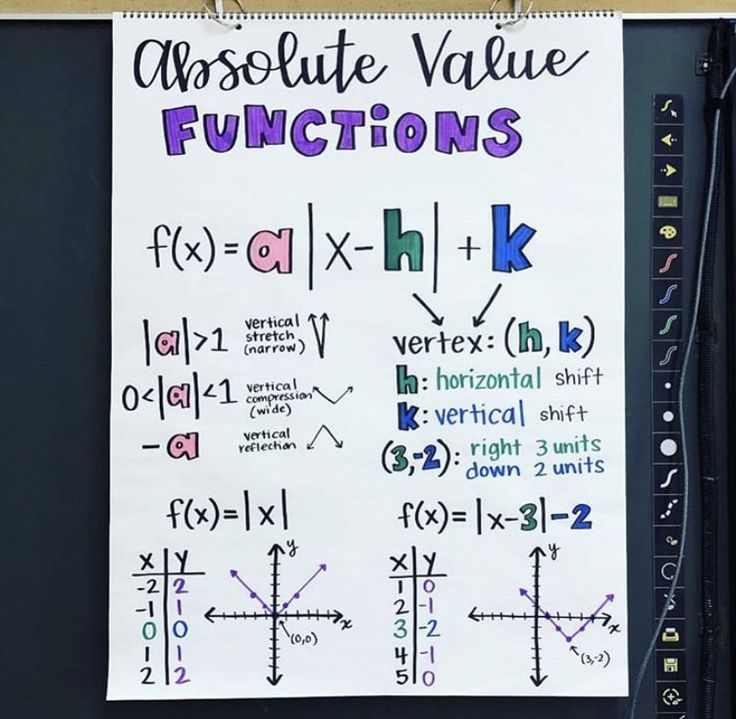 Absolute Value
FUNCTIONS
f(x) = a|x-h| + k
|a|>1 vertical stretch (narrow)
0<|a|<1 vertical compression (wide)
-a vertical reflection
vertex: (h, k)
h: horizontal shift
k: vertical shift
(3,-2): right 3 units
down 2 units
f(x)=|x|
x y
-2 2
-1 1
0 0
1 1
2 2
y
x
(0,0)
f(x)= |x-3|-2
x y
1 0
2 -1
3 -2
4 -1
5 0
y
x
(3,-2)